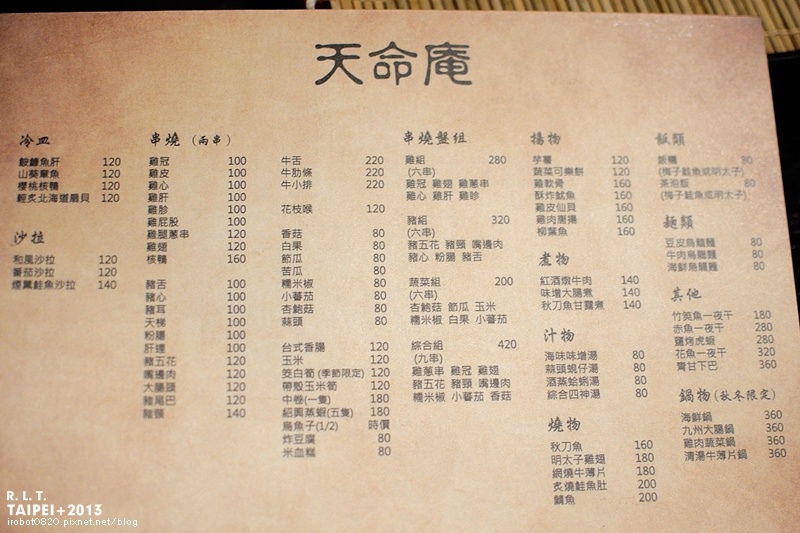 天命庵
冷皿
鮟鱇魚肝 120
山葵章魚 120
櫻桃核鴨 120
輕炙北海道扇貝 120
沙拉
和風沙拉 120
蕃茄沙拉 120
煙薰鮭魚沙拉 140
串燒 (兩串)
雞冠 100
雞皮 100
雞心 100
雞肝 100
雞胗 100
雞屁股 100
雞腿蔥串 120
雞翅 120
核鴨 160
豬舌 100
豬心 100
豬耳 100
天梯 100
粉腸 100
肝連 100
豬五花 120
嘴邊肉 120
大腸頭 120
豬尾巴 120
豬頸 140
牛舌 220
牛肋條 220
牛小排 220
花枝喉 120
香菇 80
白果 80
節瓜 80
苦瓜 80
糯米椒 80
小蕃茄 80
杏鮑菇 80
蒜頭 80
台式香腸 120
玉米 120
茭白筍 (季節限定) 120
帶殼玉米筍 120
中卷(一隻) 180
紹興蒸蝦(五隻) 180
烏魚子(1/2) 時價
炸豆腐 80
米血糕 80
串燒盤組
雞組 280
(六串)
雞冠 雞翅 雞蔥串
雞心 雞肝 雞胗
豬組 320
(六串)
豬五花 豬頸 嘴邊肉
豬心 粉腸 豬舌
蔬菜組 200
(六串)
杏鮑菇 節瓜 玉米
糯米椒 白果 小蕃茄
綜合組 420
(九串)
雞蔥串 雞冠 雞翅
豬五花 豬頸 嘴邊肉
糯米椒 小蕃茄 香菇
揚物
芋薯 120
蔬菜可樂餅 120
雞軟骨 160
酥炸魷魚 160
雞皮仙貝 160
雞肉唐揚 160
柳葉魚 160
煮物
紅酒燉牛肉 140
味增大腸煮 140
秋刀魚甘露煮 140
汁物
海味味增湯 80
蒜頭蜆仔湯 80
酒蒸蛤蜊湯 80
綜合四神湯 80
燒物
秋刀魚 160
明太子雞翅 180
網燒牛薄片 180
炙燒鮭魚肚 200
鯖魚 200
飯類
飯糰 80
(梅子鮭魚或明太子)
茶泡飯 80
(梅子鮭魚或明太子)
麵類
豆皮烏龍麵 80
牛肉烏龍麵 80
海鮮烏龍麵 80
其他
竹筴魚一夜干 180
赤魚一夜干 280
鹽烤虎蝦 280
花魚一夜干 320
青甘下巴 360
鍋物(秋冬限定)
海鮮鍋 360
九州大腸鍋 360
雞肉蔬菜鍋 360
清湯牛薄片鍋 360
R. L. T.
TAIPEI+2013
irobot0820.pixnet.net/blog